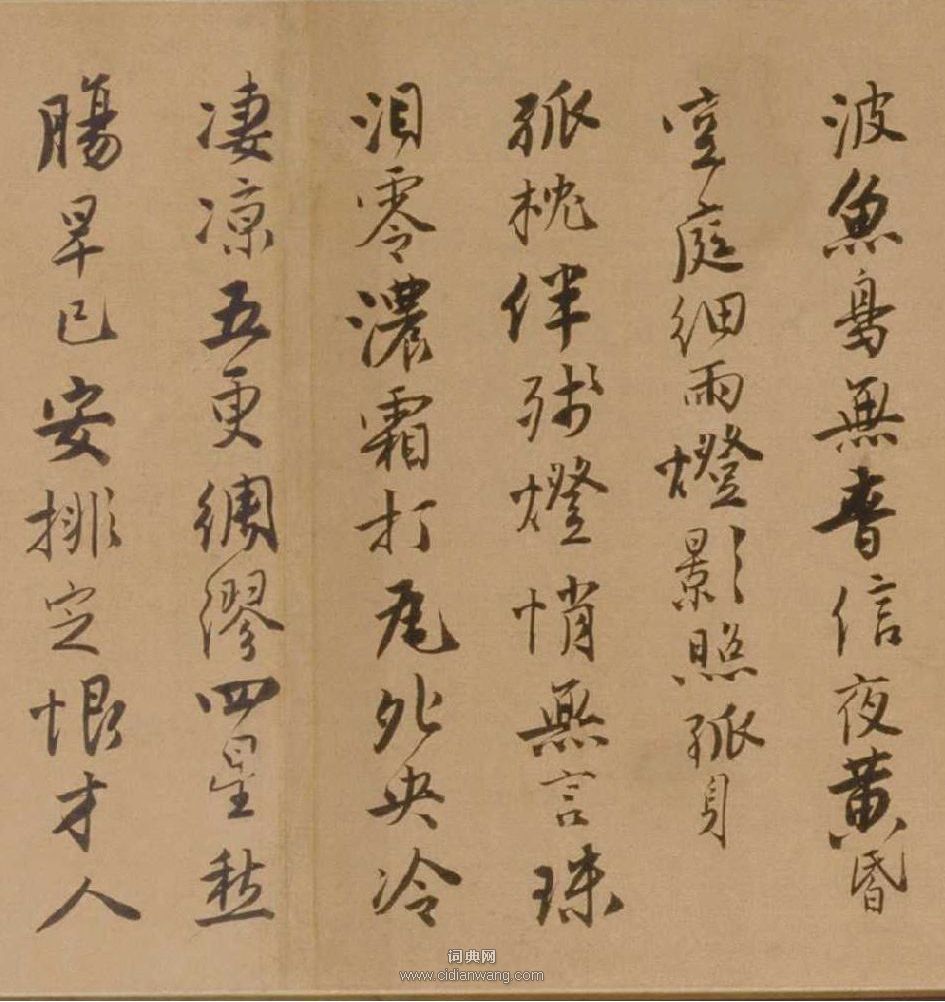 波魚鳥無音信夜黃昏
空庭細雨燈影照孤身
孤枕伴殘燈悄無言珠
泪零濃霜打瓦夗央冷
凄凉五更綢繆四星愁
腸早已安排定恨才人
词典网
www.cidianwang.com